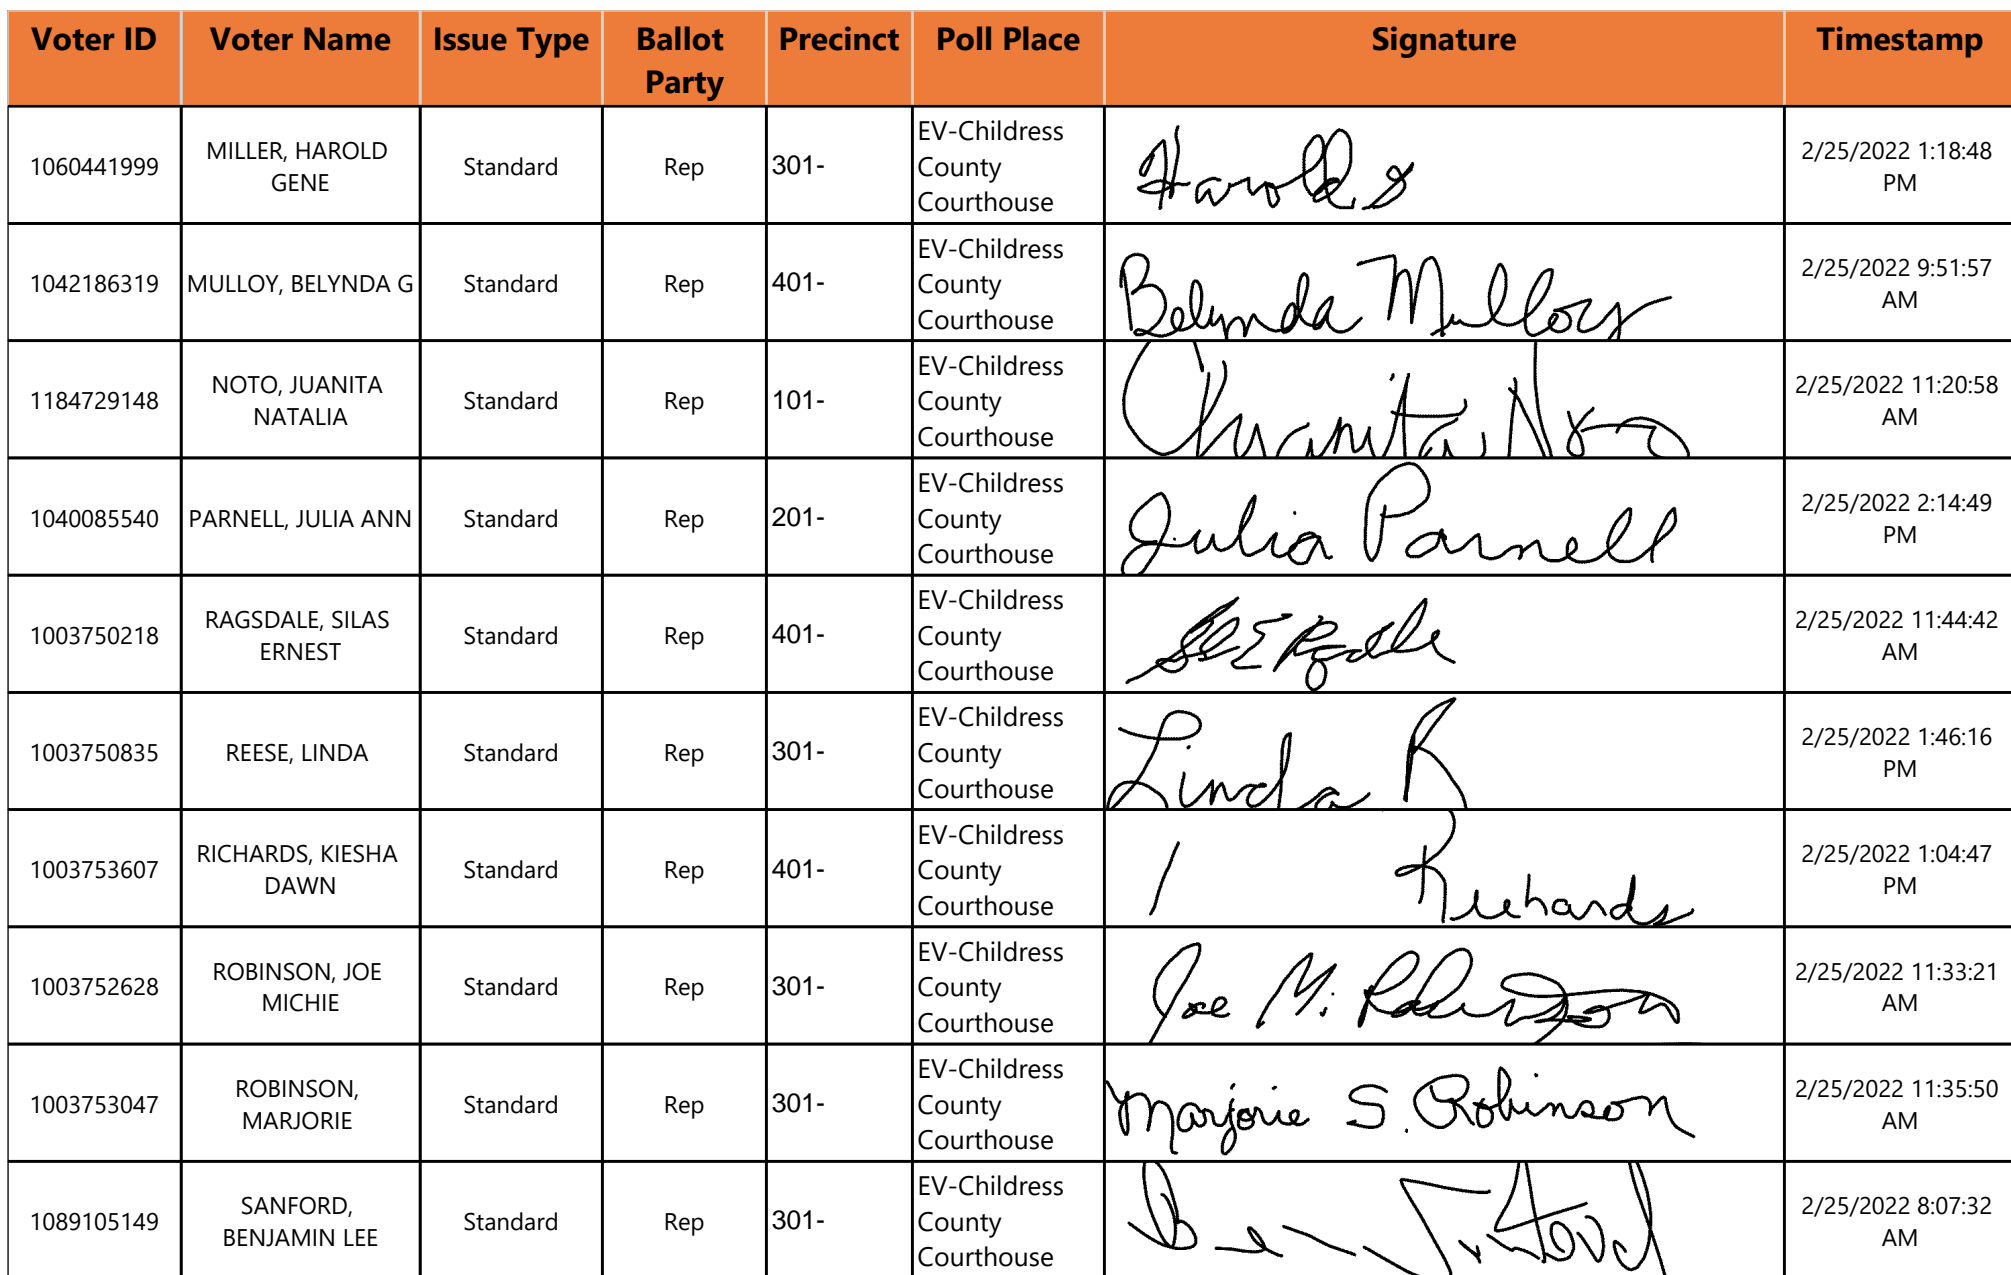 Voter ID Voter Name Issue Type Ballot Party Precinct Poll Place Signature Timestamp
1060441999 MILLER, HAROLD GENE Standard Rep 301- EV-Childress County Courthouse Harold 2/25/2022 1:18:48 PM
1042186319 MULLOY, BELYNDA G Standard Rep 401- EV-Childress County Courthouse Belynda Mulloy 2/25/2022 9:51:57 AM
1184729148 NOTO, JUANITA NATALIA Standard Rep 101- EV-Childress County Courthouse Juanita Noto 2/25/2022 11:20:58 AM
1040085540 PARNELL, JULIA ANN Standard Rep 201- EV-Childress County Courthouse Julia Parnell 2/25/2022 2:14:49 PM
1003750218 RAGSDALE, SILAS ERNEST Standard Rep 401- EV-Childress County Courthouse 2/25/2022 11:44:42 AM
1003750835 REESE, LINDA Standard Rep 301- EV-Childress County Courthouse Linda R 2/25/2022 1:46:16 PM
1003753607 RICHARDS, KIESHA DAWN Standard Rep 401- EV-Childress County Courthouse Richards 2/25/2022 1:04:47 PM
1003752628 ROBINSON, JOE MICHIE Standard Rep 301- EV-Childress County Courthouse Joe M. Robinson 2/25/2022 11:33:21 AM
1003753047 ROBINSON, MARJORIE Standard Rep 301- EV-Childress County Courthouse Marjorie S. Robinson 2/25/2022 11:35:50 AM
1089105149 SANFORD, BENJAMIN LEE Standard Rep 301- EV-Childress County Courthouse 2/25/2022 8:07:32 AM